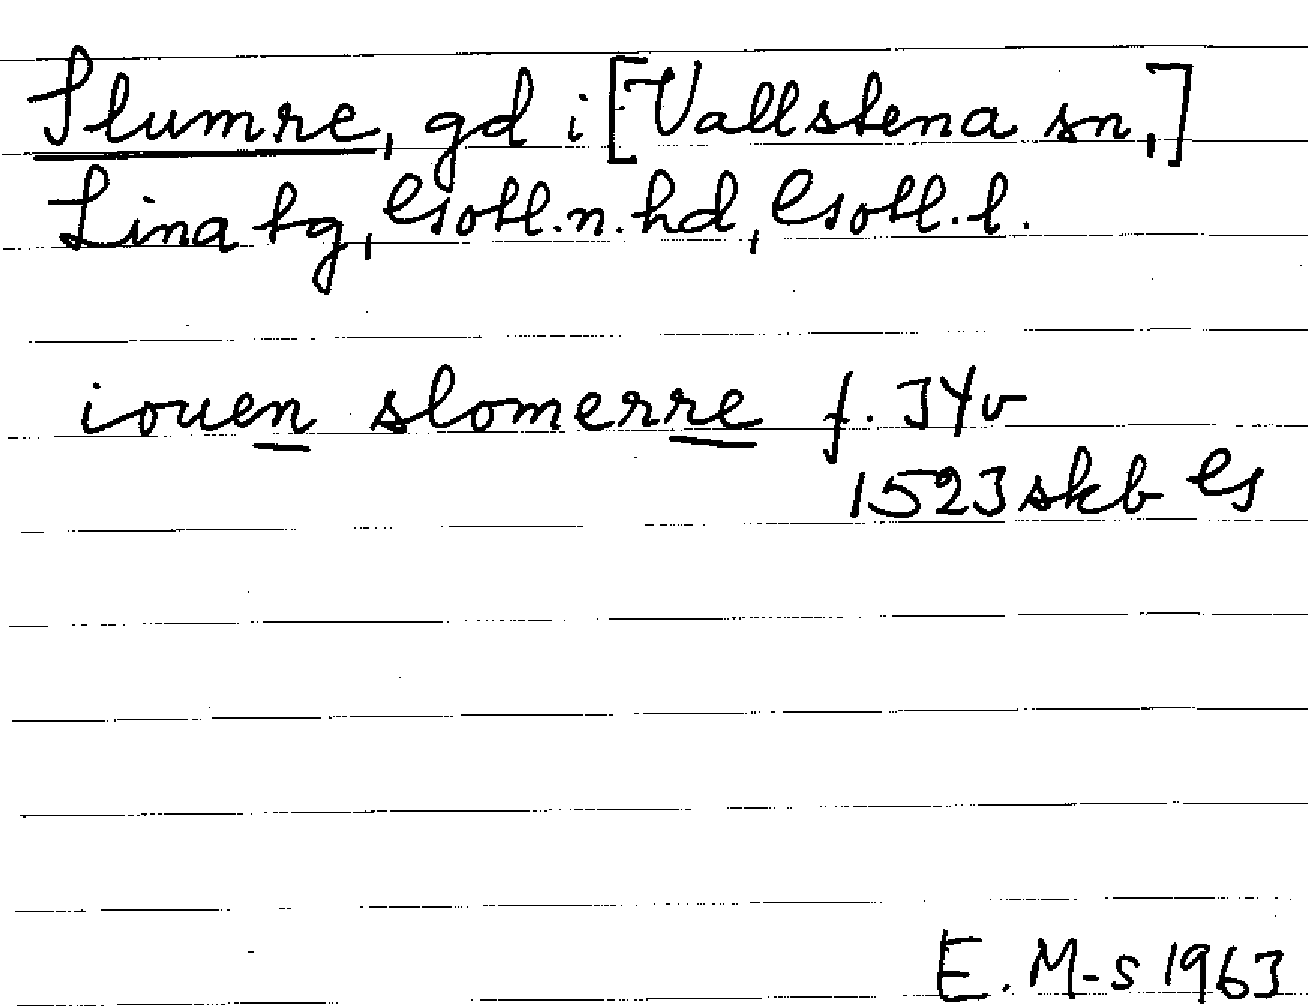 Slumre, gd i [Vallstena sn,]
Lina tg, Gotl.n.hd, Gotl.l.
iouen slomerre f. 34v
1523 skb G
E. M-s 1963